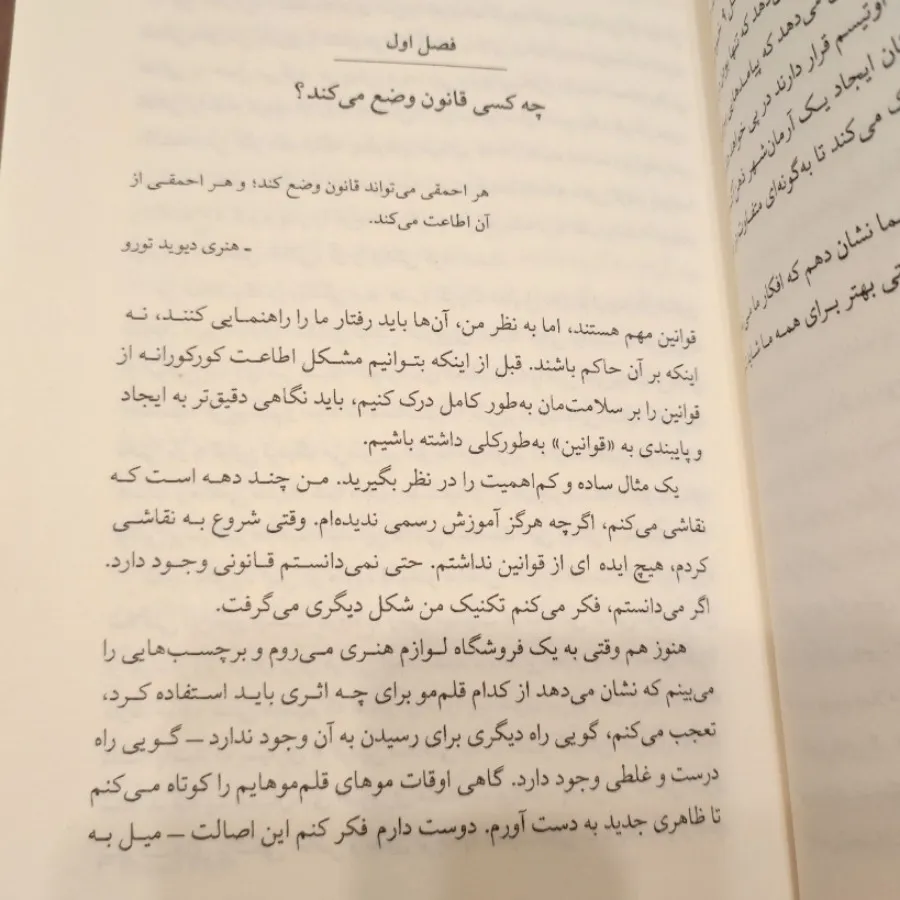 فصل اول
چه کسی قانون وضع می‌کند؟
هر احمقی می‌تواند قانون وضع کند؛ و هر احمقی از
آن اطاعت می‌کند.
ـ هنری دیوید تورو
قوانین مهم هستند، اما به نظر من، آن‌ها باید رفتار ما را راهنمایی کنند، نه
اینکه بر آن حاکم باشند. قبل از اینکه بتوانیم مشکل اطاعت کورکورانه از
قوانین را بر سلامت‌مان به‌طور کامل درک کنیم، باید نگاهی دقیق‌تر به ایجاد
و پایبندی به «قوانین» به‌طورکلی داشته باشیم.
یک مثال ساده و کم‌اهمیت را در نظر بگیرید. من چند دهه است که
نقاشی می‌کنم، اگرچه هرگز آموزش رسمی ندیده‌ام. وقتی شروع به نقاشی
کردم، هیچ ایده ای از قوانین نداشتم. حتی نمی‌دانستم قانونی وجود دارد.
اگر می‌دانستم، فکر می‌کنم تکنیک من شکل دیگری می‌گرفت.
هنوز هم وقتی به یک فروشگاه لوازم هنری می‌روم و برچسب‌هایی را
می‌بینم که نشان می‌دهد از کدام قلم‌مو برای چه اثری باید استفاده کرد،
تعجب می‌کنم، گویی راه دیگری برای رسیدن به آن وجود ندارد ــ گویی راه
درست و غلطی وجود دارد. گاهی اوقات موهای قلم‌موهایم را کوتاه می‌کنم
تا ظاهری جدید به دست آورم. دوست دارم فکر کنم این اصالت ــ میل به
می‌دهد که تنها
می‌دهد که پیامدهای
اوتیسم قرار دارند در پی
ایجاد یک آرمان‌شهر
می‌کند تا به‌گونه‌ای متفاوت
نشان دهم که افکار ما
بهتر برای همه ما